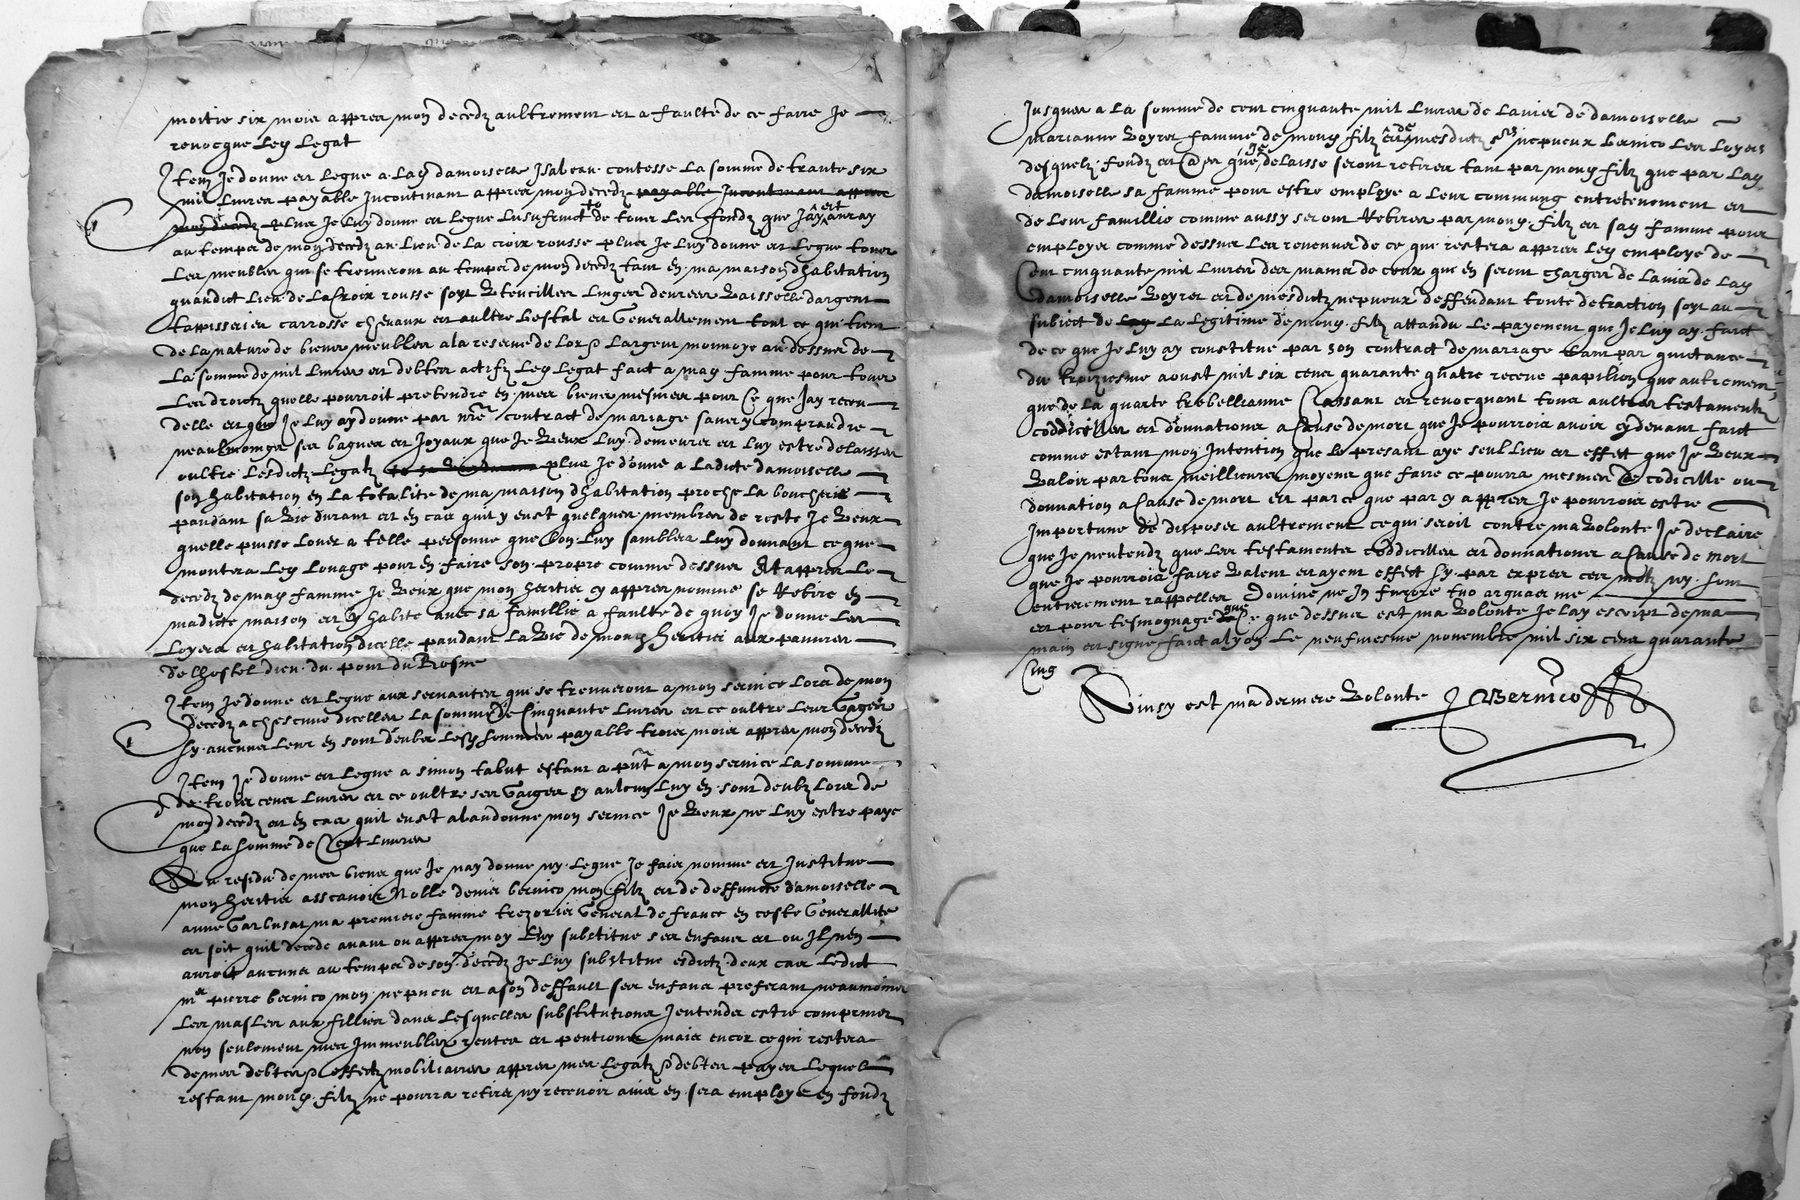 moitie six mois appres mon decedz aultrement et a faulte de ce faire je
revocque led legat
Item je donne et legue a lad damoiselle Isabeau contesse la somme de trante six
mil livres payable incontinant appres mon decedz payable incontinant appres
mon decedz plus je luy donne et legue lusufruict de tous les fondz que jay et auray
au temps de mon decedz au lieu de la croix rousse plus je luy donne et legue tous
les meubles qui se treuveront au temps de mon decedz tant en ma maison dhabitation
quaudict lieu de la Croix rousse soyt Utencilles linges denrees Vaisselle dargent
tappisseries carrosse chevaux et aultre bestal et Generallement tout ce qui tient
de la nature de biens meubles a la reserve de lor & largent monnoye au dessus de
la somme de mil livres et debtes actifz led legat faict a mad famme pour tous
les droictz quelle pourroit pretendre en mes biens mesmes pour Ce que jay receu
delle et que je luy ay donne par nre contract de mariage sans y comprandre
neaulmoings ses bagues et joyaux que je Veux luy demeurer et luy estre delaisses
oultre lesdictz legatz plus je donne a ladicte damoiselle
son habitation en la totalite de ma maison dhabitation proche la boucherie
pandant sa Vie durant et en cas quil y eust quelques membres de reste je Veux
quelle puisse louer a telle personne que bon luy semblera luy donnant ce que
montera led louage pour en faire son propre comme dessus Et appres le
decedz de mad famme je Veux que mon heritier cy appres nomme se Retire en
madicte maison et y habite avec sa famillie a faulte de quoy je donne les
loyers et habitation dicelle pandant la Vie de mond heritier aux pauvres
de lhostel dieu du pont du Rosne
Item je donne et legue aux servantes qui se treuveront a mon service lors de mon
decedz a chescune dicelles la somme de Cinquante livres et ce oultre leur Gages
sy aucunes leur en sont deubes lesd sommes payable trois mois appres mon decedz
Item je donne et legue a simon tabut estant a pnt a mon service la somme
de trois cens livres et ce oultre ses Gaiges sy aulcuns luy en sont deubz lors de
mon decedz et en cas quil eust abandonne mon service je Veux ne luy estre paye
que la somme de Cent livres
Et a residu de mes biens que je nay donne ny legue je fais nomme et Institue
mon heritier asscavoir Nolle denis bernico mon filz et de deffuncte damoiselle
anne Garbusat ma premiere famme trezorier General de france en ceste Generallite
et soit quil decede avant ou appres moy luy substitue ses enfans et ou il nen
auroit aucuns au temps de son decedz je luy substitue esdictz deux cas ledict
mr pierre bernico mon nepveu et a son deffault ses enfans preferant neaumoins
les masles aux fillies dans lesquelles substitutions jentends estre comprins
non seulement mes immeubles rentes et pentions mais encor ce qui restera
de mes debtes & effectz mobiliaires appres mes legatz & debtes payes lequel
restant mond filz ne pourra retirer ny recevoir ains en sera employe en fondz
Jusques a la somme de cent cinquante mil livres de ladvis de damoiselle
marianne boyres famme de mond filz et de mesdictz srs nepveux bernico les loyers
desquelz fondz et que je delaisse seront retires tant par mond filz que par lad
damoiselle sa famme pour estre employe a leur commung entretenement et
de leur famillie comme aussy seront Retires par mond filz et sad famme pour
employer comme dessus les revenus de ce que restera appres led employe de
Cent cinquante mil livres des mains de ceux qui en seront charges de ladvis de lad
damoiselle boyres et de mesdictz nepveux deffendant toute detraction soyt au
subiect de la legitime de mond filz attandu le payement que je luy ay faict
de ce que je luy ay constitue par son contract de marriage tant par quictance
du troiziesme aoust mil six cens quarante quatre receue papilion que autrement
que de la quarte trebellianne Cassant et revocquant tous aultres testamentz
coddicilles et donnations a Cause de mort que je pourrois avoir cy devant faict
comme estant mon intention que le presant aye seul lieu et effect que je Veux
Valoir par tous meillieurs moyens que faire ce pourra mesmes de codicille ou
donnation a Cause de mort et parce que par cy appres je pourrois estre
Importune de disposer aultrement ce qui seroit contre ma Volonte je declaire
que je nentendz que les testamentes coddicilles et donnations a Cause de mort
que je pourrois faire Valent et ayent effect sy par expres ces motz ny sont
entierement rappelles Domine ne in furore tuo arguas me
et pour tesmognage que Ce que dessus est ma Volonte je lay escript de ma
main et signe faict a lyon le neufviesme novembre mil six cens quarante
Cinq
Ainsy est ma derniere Volonte Bernico